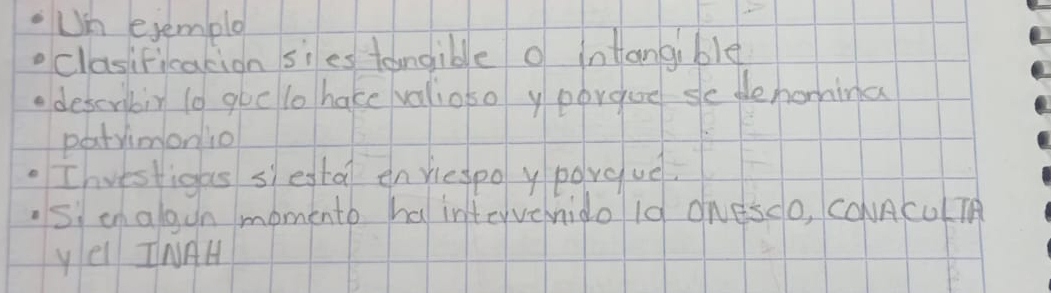 • Un ejemplo
• Clasificación si es tangible o intangible
• describir lo que lo hace valioso y porque se denomina
patrimonio
• Investigas si está en riespo y porqué.
• Si en algun momento ha intervenido la ONESCO, CONACULTA
y el INAH